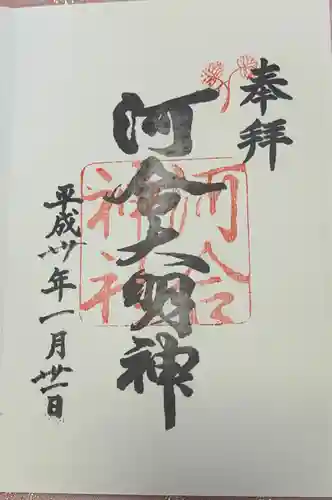 奉拝
河合大明神
河合神社
平成卅年一月卅一日